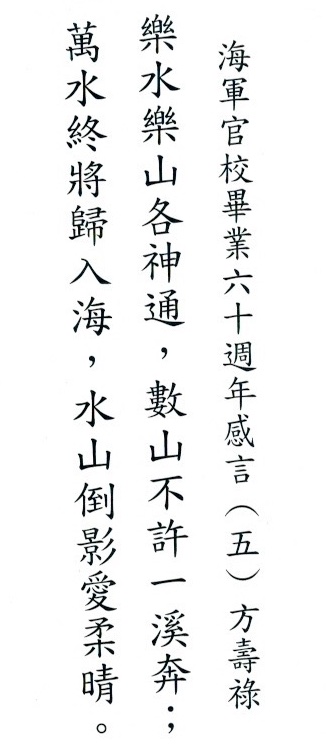 海軍官校畢業六十週年感言（五）方壽祿
樂水樂山各神通，數山不許一溪奔；
萬水終將歸入海，水山倒影愛柔晴。